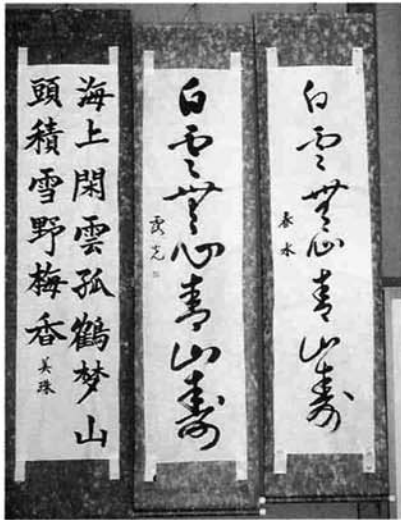 白雲無心青山寿
春水
白雲無心青山寿
海上閑雲孤鶴梦山
頭積雪野梅香
美珠